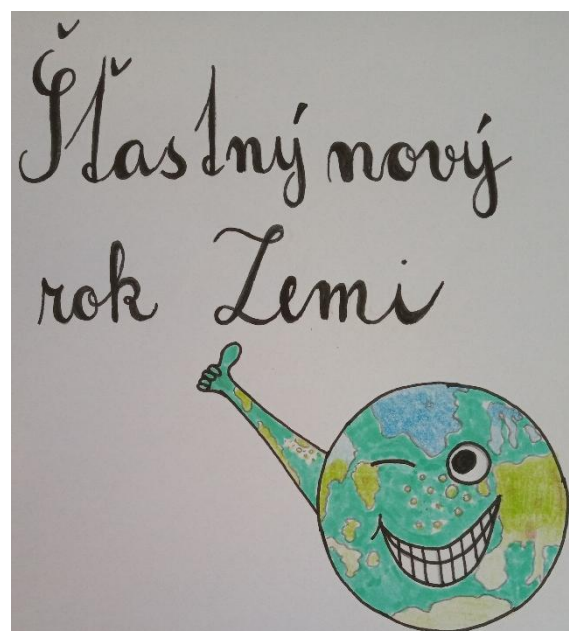 Šťastný nový
rok Zemi